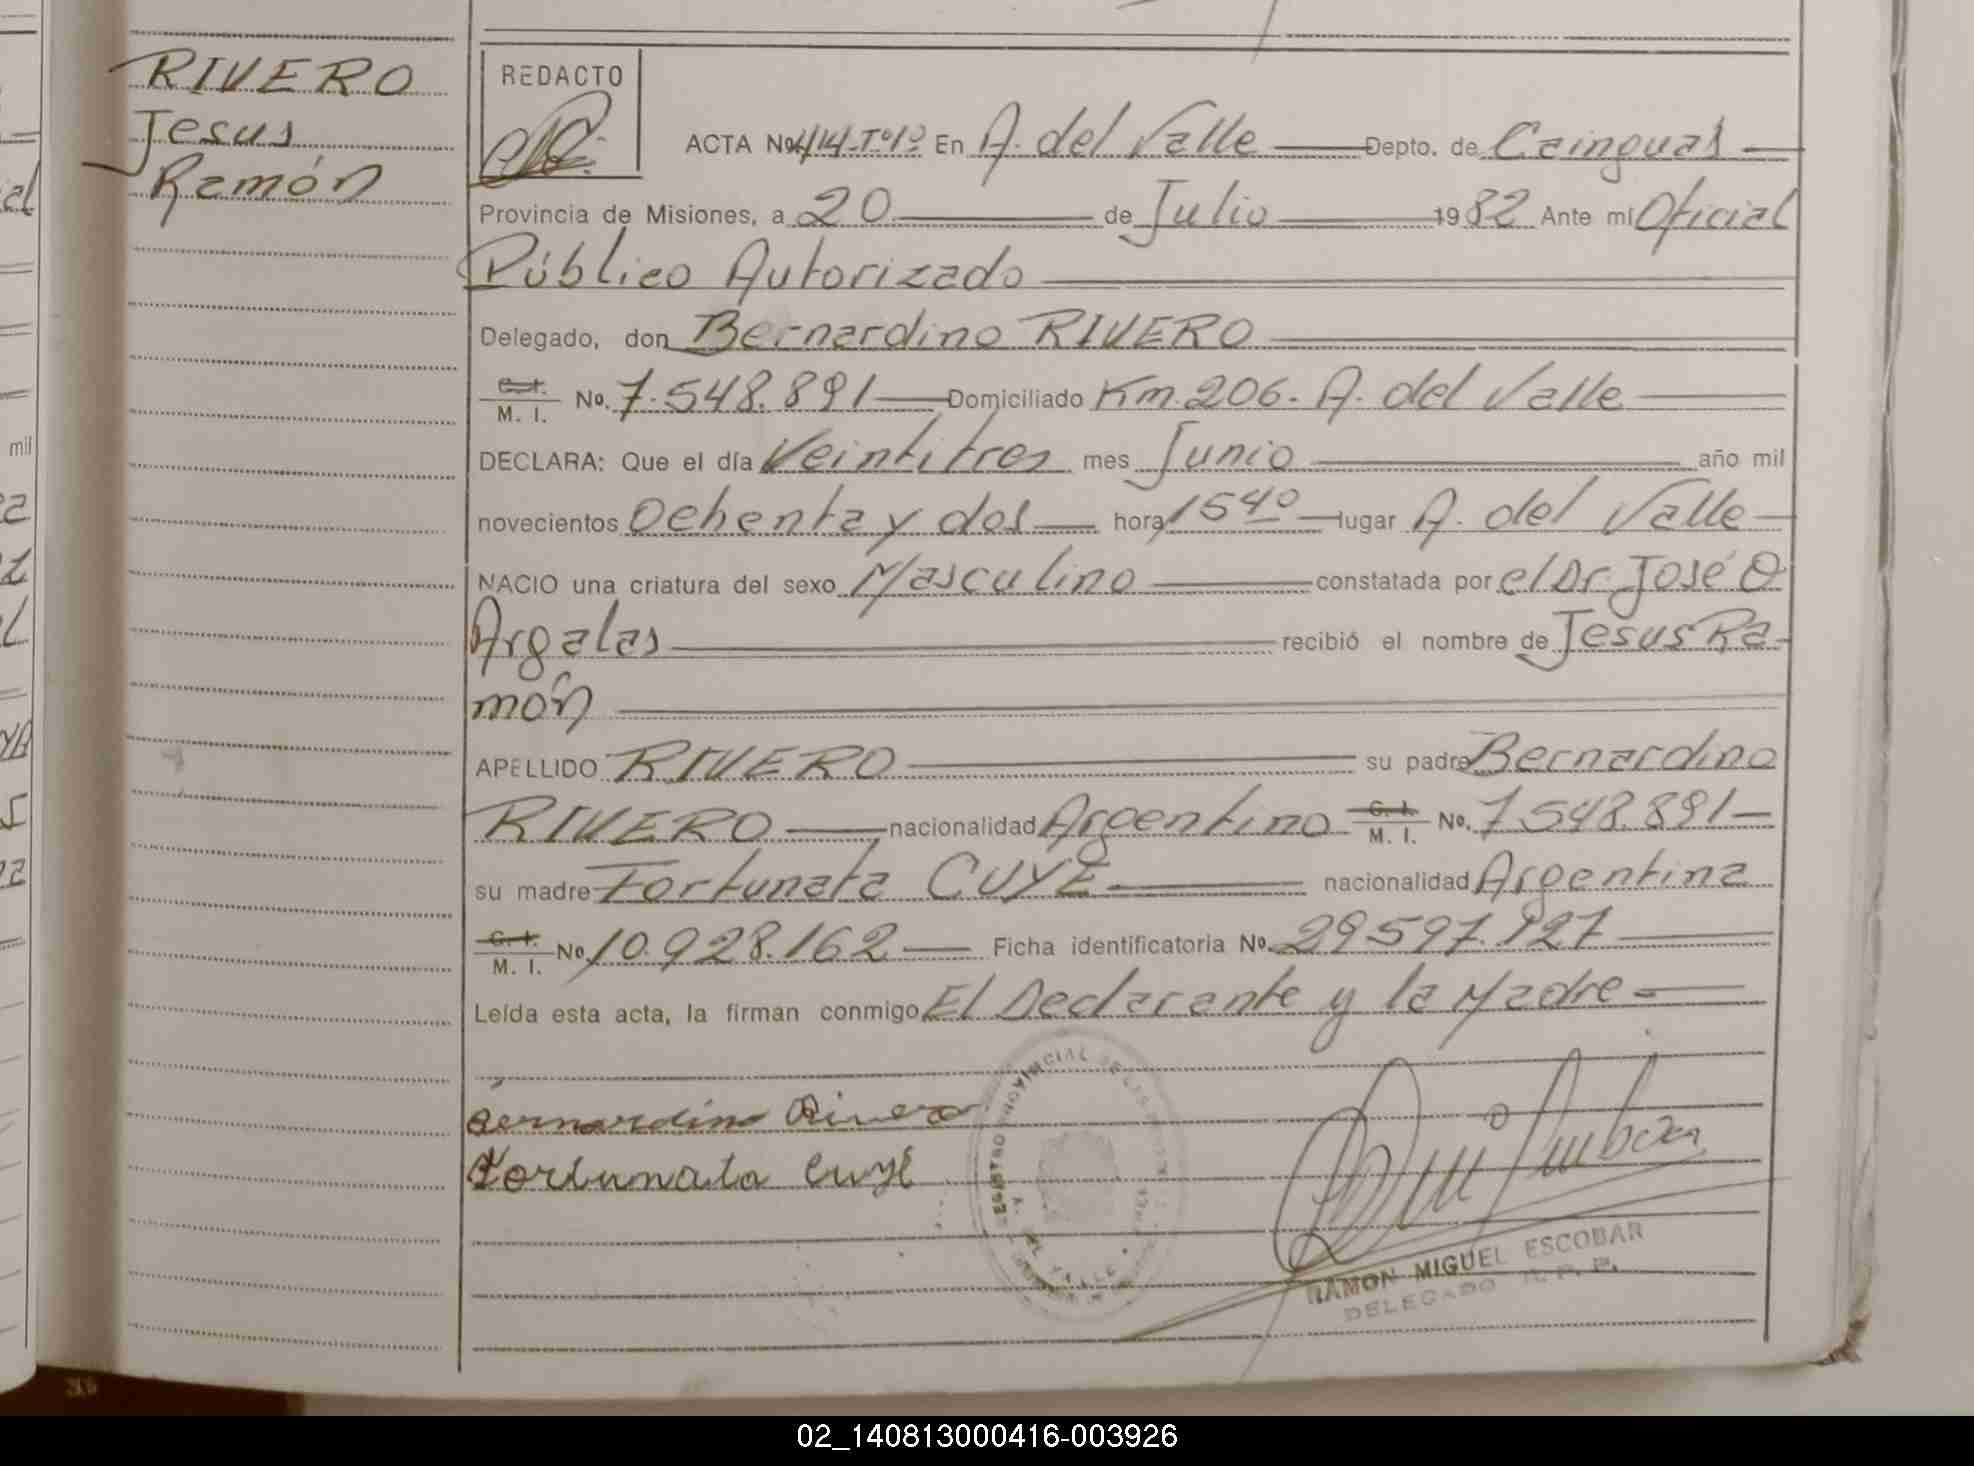 RIVERO
Jesus
Ramón
REDACTO
ACTA No. 414-Tº1º En A. del Valle Depto. de Cainguás
Provincia de Misiones, a 20 de Julio 1982 Ante mí Oficial
Público Autorizado
Delegado, don Bernardino RIVERO
C. I. M. I. No. 7.548.891 Domiciliado Km. 206. A. del Valle
DECLARA: Que el día Veintitres mes Junio año mil
novecientos Ochenta y dos hora 1540 lugar A. del Valle
NACIO una criatura del sexo Masculino constatada por el Dr. José O
Argalas recibió el nombre de Jesus Ra-
món
APELLIDO RIVERO su padre Bernardino
RIVERO nacionalidad Argentino C. I. M. I. No. 7.548.891
su madre Fortunata CUYE nacionalidad Argentina
C. I. M. I. No. 10.928.162 Ficha identificatoria No. 29597.127
Leída esta acta, la firman conmigo El Declarante y la Madre
Bernardino Rivero
Fortunata Cuye
REGISTRO PROVINCIAL DE LAS
VALLE
RAMON MIGUEL ESCOBAR
DELEGADO R. P. P.
mil
02_140813000416-003926